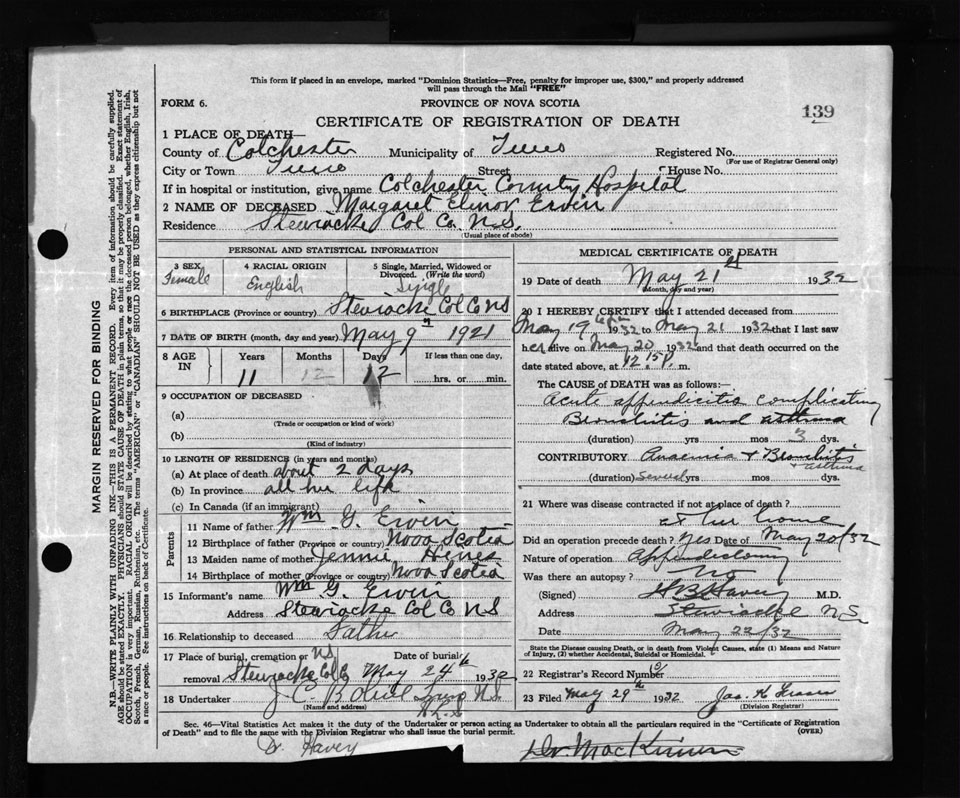 This form if placed in an envelope, marked "Dominion Statistics—Free, penalty for improper use, $300," and properly addressed
will pass through the Mail "FREE"
FORM 6.
PROVINCE OF NOVA SCOTIA
139
CERTIFICATE OF REGISTRATION OF DEATH
1 PLACE OF DEATH—
County of Colchester Municipality of Truro Registered No.
(For use of Registrar General only)
City or Town Truro Street House No.
If in hospital or institution, give name Colchester County Hospital
2 NAME OF DECEASED Margaret Elinor Ervin
Residence Stewiacke Col Co. N.S.
(Usual place of abode)
PERSONAL AND STATISTICAL INFORMATION
3 SEX 4 RACIAL ORIGIN 5 Single, Married, Widowed or
Divorced. (Write the word)
Female English Single
6 BIRTHPLACE (Province or country) Stewiacke Col Co NS
7 DATE OF BIRTH (month, day and year) May 9th 1921
8 AGE IN Years Months Days If less than one day,
11 12 12 hrs. or min.
9 OCCUPATION OF DECEASED
(a)
(Trade or occupation or kind of work)
(b)
(Kind of industry)
10 LENGTH OF RESIDENCE (in years and months)
(a) At place of death about 2 days
(b) In province all her life
(c) In Canada (if an immigrant)
Parents
11 Name of father Wm G. Ervin
12 Birthplace of father (Province or country) Nova Scotia
13 Maiden name of mother Jennie
14 Birthplace of mother (Province or country) Nova Scotia
15 Informant's name Wm G. Ervin
Address Stewiacke Col Co NS
16 Relationship to deceased Father
17 Place of burial, cremation or NS Date of burial
removal Stewiacke Col Co May 24th 1932
18 Undertaker J. C. N.S.
(Name and address)
MEDICAL CERTIFICATE OF DEATH
19 Date of death May 21st 1932
(Month, day and year)
20 I HEREBY CERTIFY that I attended deceased from
May 19th 1932 to May 21 1932 that I last saw
her alive on May 20 1932 and that death occurred on the
date stated above, at 12.15 P. m.
The CAUSE OF DEATH was as follows:—
Acute appendicitis complicating
Bronchitis and asthma
(duration) yrs mos 3 dys.
CONTRIBUTORY Anaemia + Bronchitis
+ asthma
(duration) Several yrs mos dys.
21 Where was disease contracted if not at place of death?
at her home
Did an operation precede death? Yes Date of May 20/32
Nature of operation Appendictomy
Was there an autopsy? No
(Signed) H B Havey M.D.
Address Stewiacke N.S.
Date May 22/32
State the Disease causing Death, or in death from Violent Causes, state (1) Means and Nature
of Injury, (2) whether Accidental, Suicidal or Homicidal.
22 Registrar's Record Number
23 Filed May 29th 1932 Jas. H
(Division Registrar)
Sec. 46—Vital Statistics Act makes it the duty of the Undertaker or person acting as Undertaker to obtain all the particulars required in the "Certificate of Registration
of Death" and to file the same with the Division Registrar who shall issue the burial permit. (OVER)
Dr. Havey Dr. MacKinnon
MARGIN RESERVED FOR BINDING
N.B.—WRITE PLAINLY WITH UNFADING INK—THIS IS A PERMANENT RECORD. Every item of information should be carefully supplied.
AGE should be stated EXACTLY. PHYSICIANS should STATE CAUSE OF DEATH in plain terms, so that it may be properly classified. Exact statement of
OCCUPATION is very important. RACIAL ORIGIN will be described by stating to what people or race the deceased person belonged, whether English, Irish,
Scotch, French, German, Russian, Ruthenian, etc. The terms "AMERICAN" or "CANADIAN" SHOULD NOT BE USED as they express citizenship but not
a race or people. See instructions on back of Certificate.